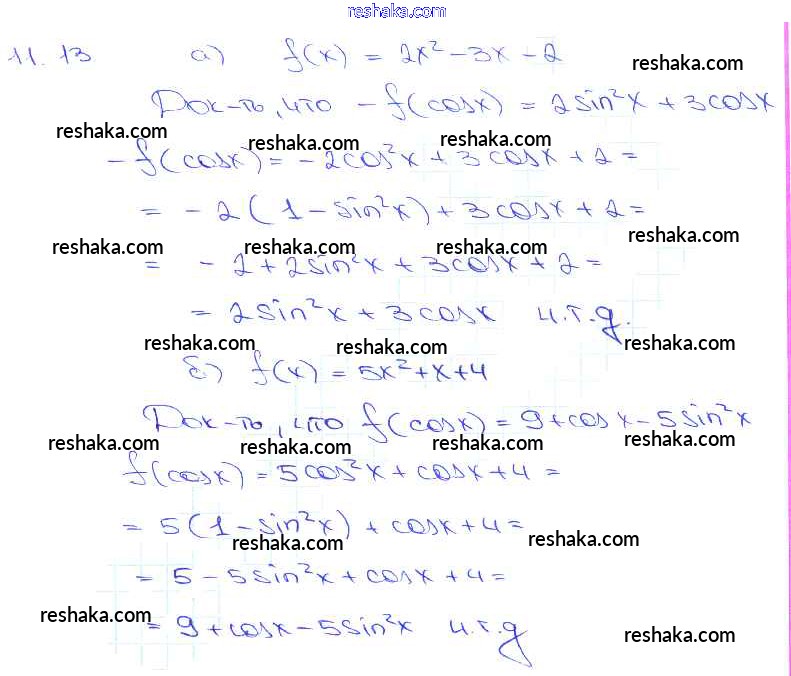 reshaka.com
11.13 а) f(x) = 2x² - 3x - 2
reshaka.com
Док-ть, что - f(cosx) = 2sin²x + 3cosx
reshaka.com reshaka.com reshaka.com
- f(cosx) = - 2cos²x + 3cosx + 2 =
= - 2(1 - sin²x) + 3cosx + 2 =
reshaka.com
reshaka.com reshaka.com reshaka.com
= - 2 + 2sin²x + 3cosx + 2 =
= 2sin²x + 3cosx ч.т.д.
reshaka.com reshaka.com reshaka.com
б) f(x) = 5x² + x + 4
Док-ть, что f(cosx) = 9 + cosx - 5sin²x
reshaka.com reshaka.com reshaka.com reshaka.com
f(cosx) = 5cos²x + cosx + 4 =
= 5(1 - sin²x) + cosx + 4 =
reshaka.com reshaka.com
= 5 - 5sin²x + cosx + 4 =
reshaka.com
= 9 + cosx - 5sin²x ч.т.д
reshaka.com